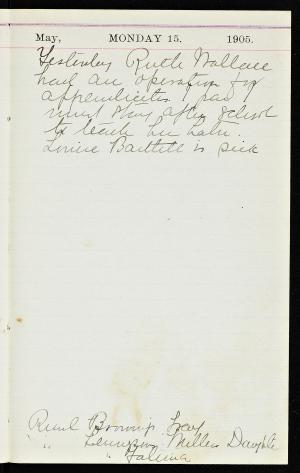 May, MONDAY 15. 1905.
Yesterday Ruth Wallace
had an operation for
appendicites. I
must stay after school
to teach her
Louise Bartlett is sick
Read Browning's
" Tennyson's Miller's Daughter
"